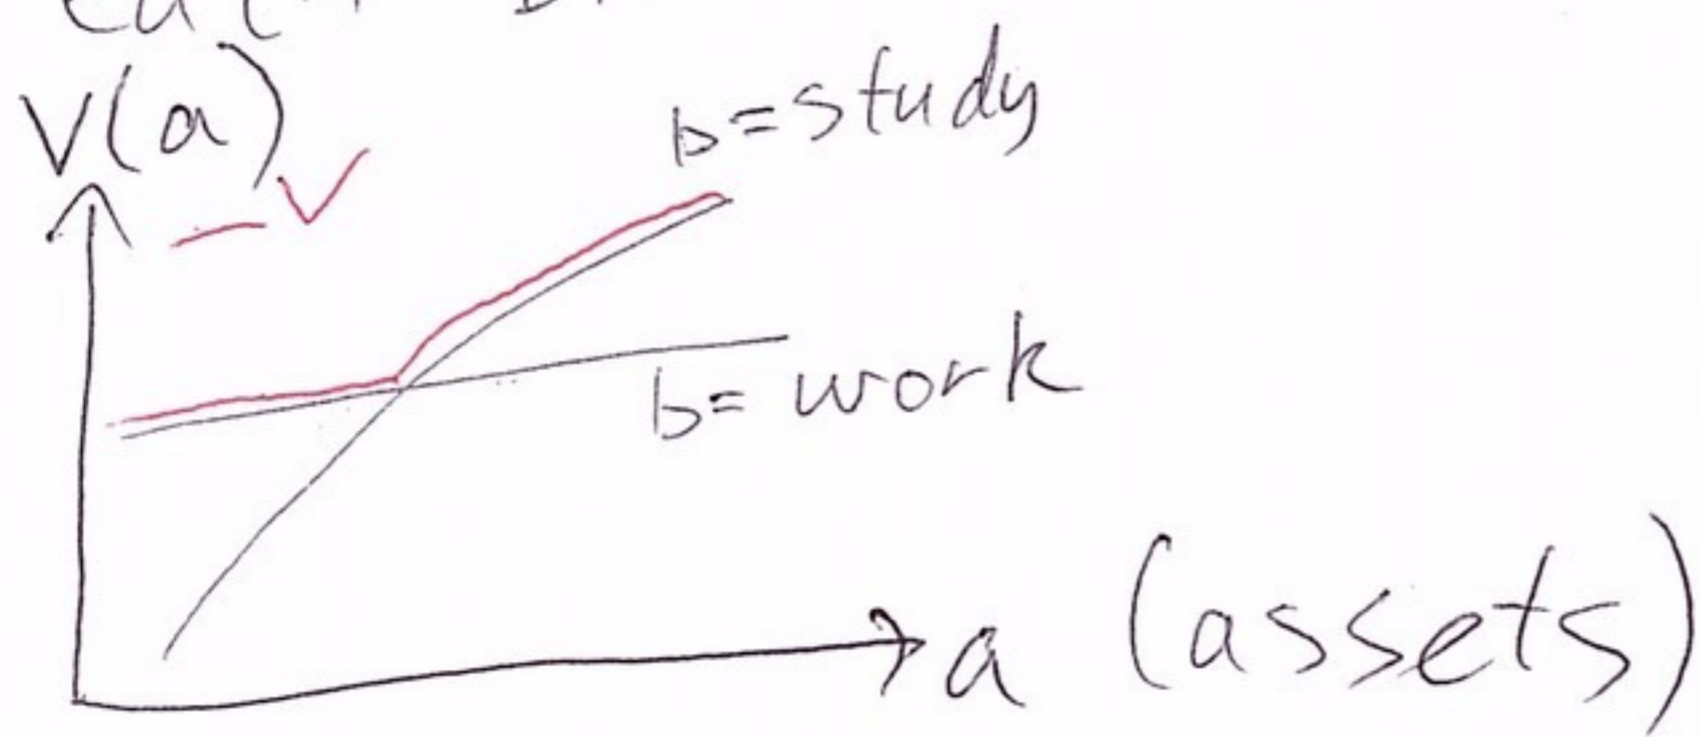 V(a)
b=study
— V
b= work
a (assets)